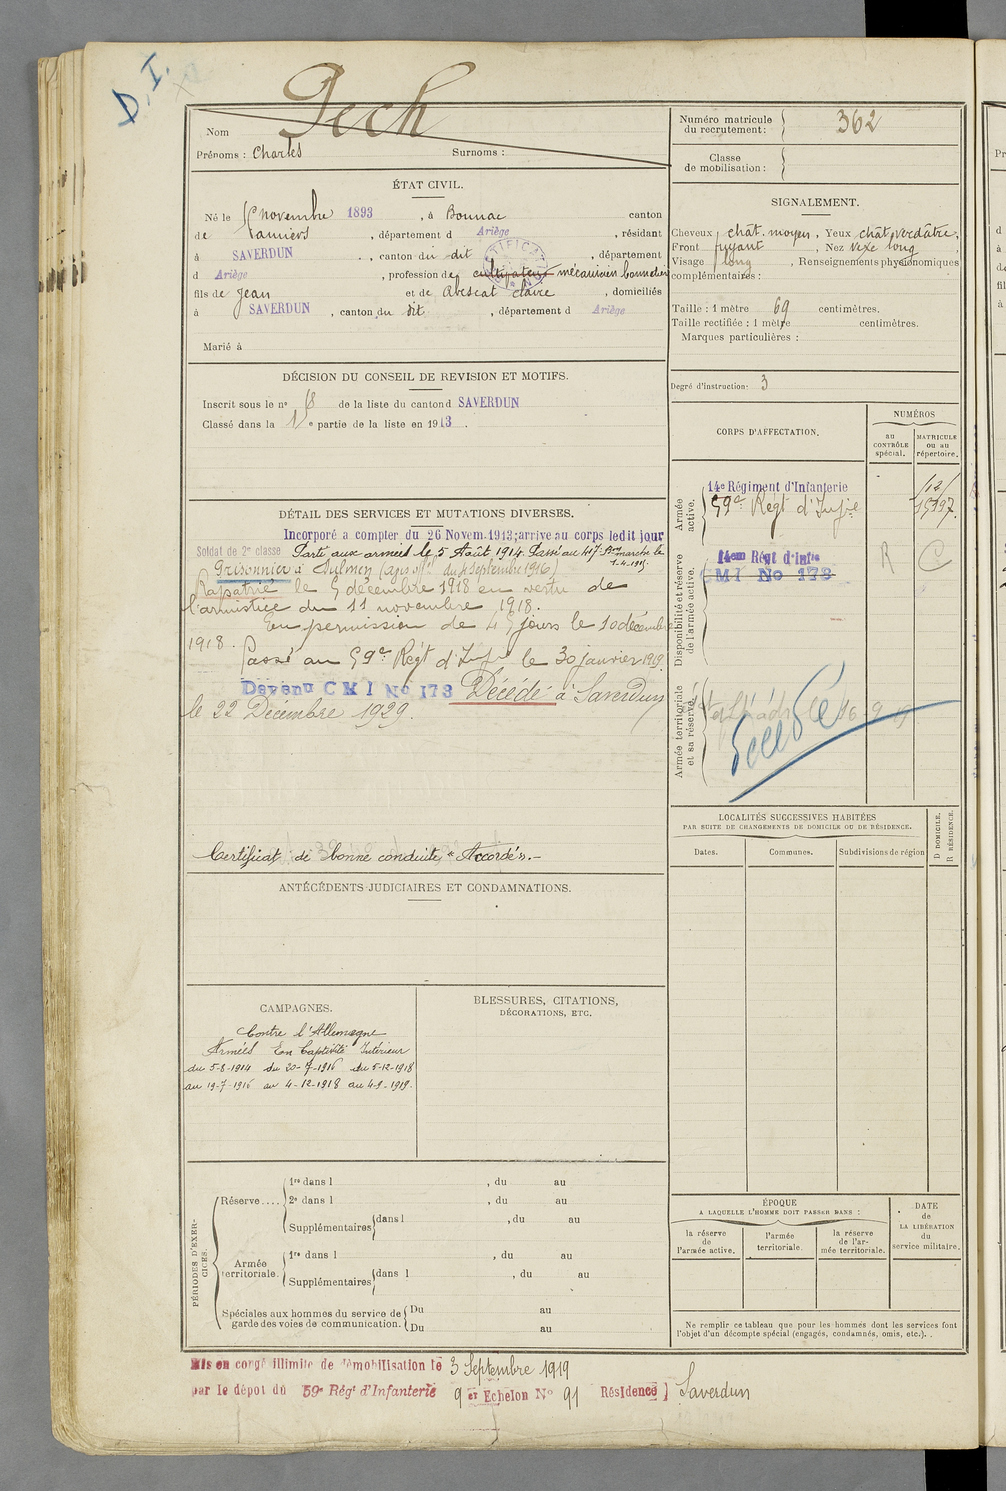 D.I.
Nom Pech
Prénoms : Charles Surnoms :
Numéro matricule du recrutement : 362
Classe de mobilisation :
ÉTAT CIVIL.
Né le novembre 1893, à Bonnac canton
de Pamiers, département d Ariège, résidant
à SAVERDUN, canton du dit, département
d Ariège, profession de cultivateur mécanicien bonnetier
fils de Jean et de Abescat claire, domiciliés
à SAVERDUN, canton du dit, département d Ariège
Marié à
SIGNALEMENT.
Cheveux chât. moyen, Yeux chât verdâtre,
Front fuyant, Nez vexe long
Visage long, Renseignements physionomiques
complémentaires :
Taille : 1 mètre 69 centimètres.
Taille rectifiée : 1 mètre centimètres.
Marques particulières :
Degré d'instruction : 3
DÉCISION DU CONSEIL DE REVISION ET MOTIFS.
Inscrit sous le n° 18 de la liste du canton d SAVERDUN
Classé dans la 1re partie de la liste en 1913.
CORPS D'AFFECTATION.
NUMÉROS
au CONTRÔLE spécial.
MATRICULE ou au répertoire.
Armée active.
14e Régiment d'Infanterie
59e Régt d'Infie
Disponibilité et réserve de l'armée active.
14em Régt d'Infie
CMI No 173
R C
Armée territoriale et sa réserve.
Décédé
DÉTAIL DES SERVICES ET MUTATIONS DIVERSES.
Incorporé a compter du 26 Novem. 1913; arrive au corps ledit jour
Soldat de 2e classe Parti aux armées le 5 Août 1914. Passé au 417e marche le
1-4-1915.
Prisonnier à Dulmen (avis off. du 4 Septembre 1916)
Rapatrié le 5 décembre 1918 en vertu de
l'armistice du 11 novembre 1918.
En permission de 45 jours le 10 décembre
1918.
Passé au 59e Régt d'Infie le 30 janvier 1919.
Devenu CMI No 173 Décédé à Saverdun
le 22 Décembre 1929.
Certificat de bonne conduite "Accordé".-
LOCALITÉS SUCCESSIVES HABITÉES
PAR SUITE DE CHANGEMENTS DE DOMICILE OU DE RÉSIDENCE.
Dates. Communes. Subdivisions de région
D DOMICILE.
R RÉSIDENCE.
ANTÉCÉDENTS JUDICIAIRES ET CONDAMNATIONS.
CAMPAGNES.
Contre l'Allemagne
Armées En Captivité Intérieur
du 5-8-1914 du 20-7-1916 du 5-12-1918
au 19-7-1916 au 4-12-1918 au 4-9-1919.
BLESSURES, CITATIONS,
DÉCORATIONS, ETC.
PÉRIODES D'EXERCICES.
Réserve....
1re dans l , du au
2e dans l , du au
Supplémentaires dans l , du au
Armée territoriale.
1re dans l , du au
Supplémentaires dans l , du au
Spéciales aux hommes du service de garde des voies de communication.
Du au
Du au
ÉPOQUE
A LAQUELLE L'HOMME DOIT PASSER DANS :
la réserve de l'armée active.
l'armée territoriale.
la réserve de l'armée territoriale.
DATE de LA LIBÉRATION du service militaire.
Ne remplir ce tableau que pour les hommes dont les services font
l'objet d'un décompte spécial (engagés, condamnés, omis, etc.).
Mis en congé illimité de démobilisation le 3 Septembre 1919
par le dépot du 59e Régt d'Infanterie 9 er Echelon No 91 Résidence Saverdun